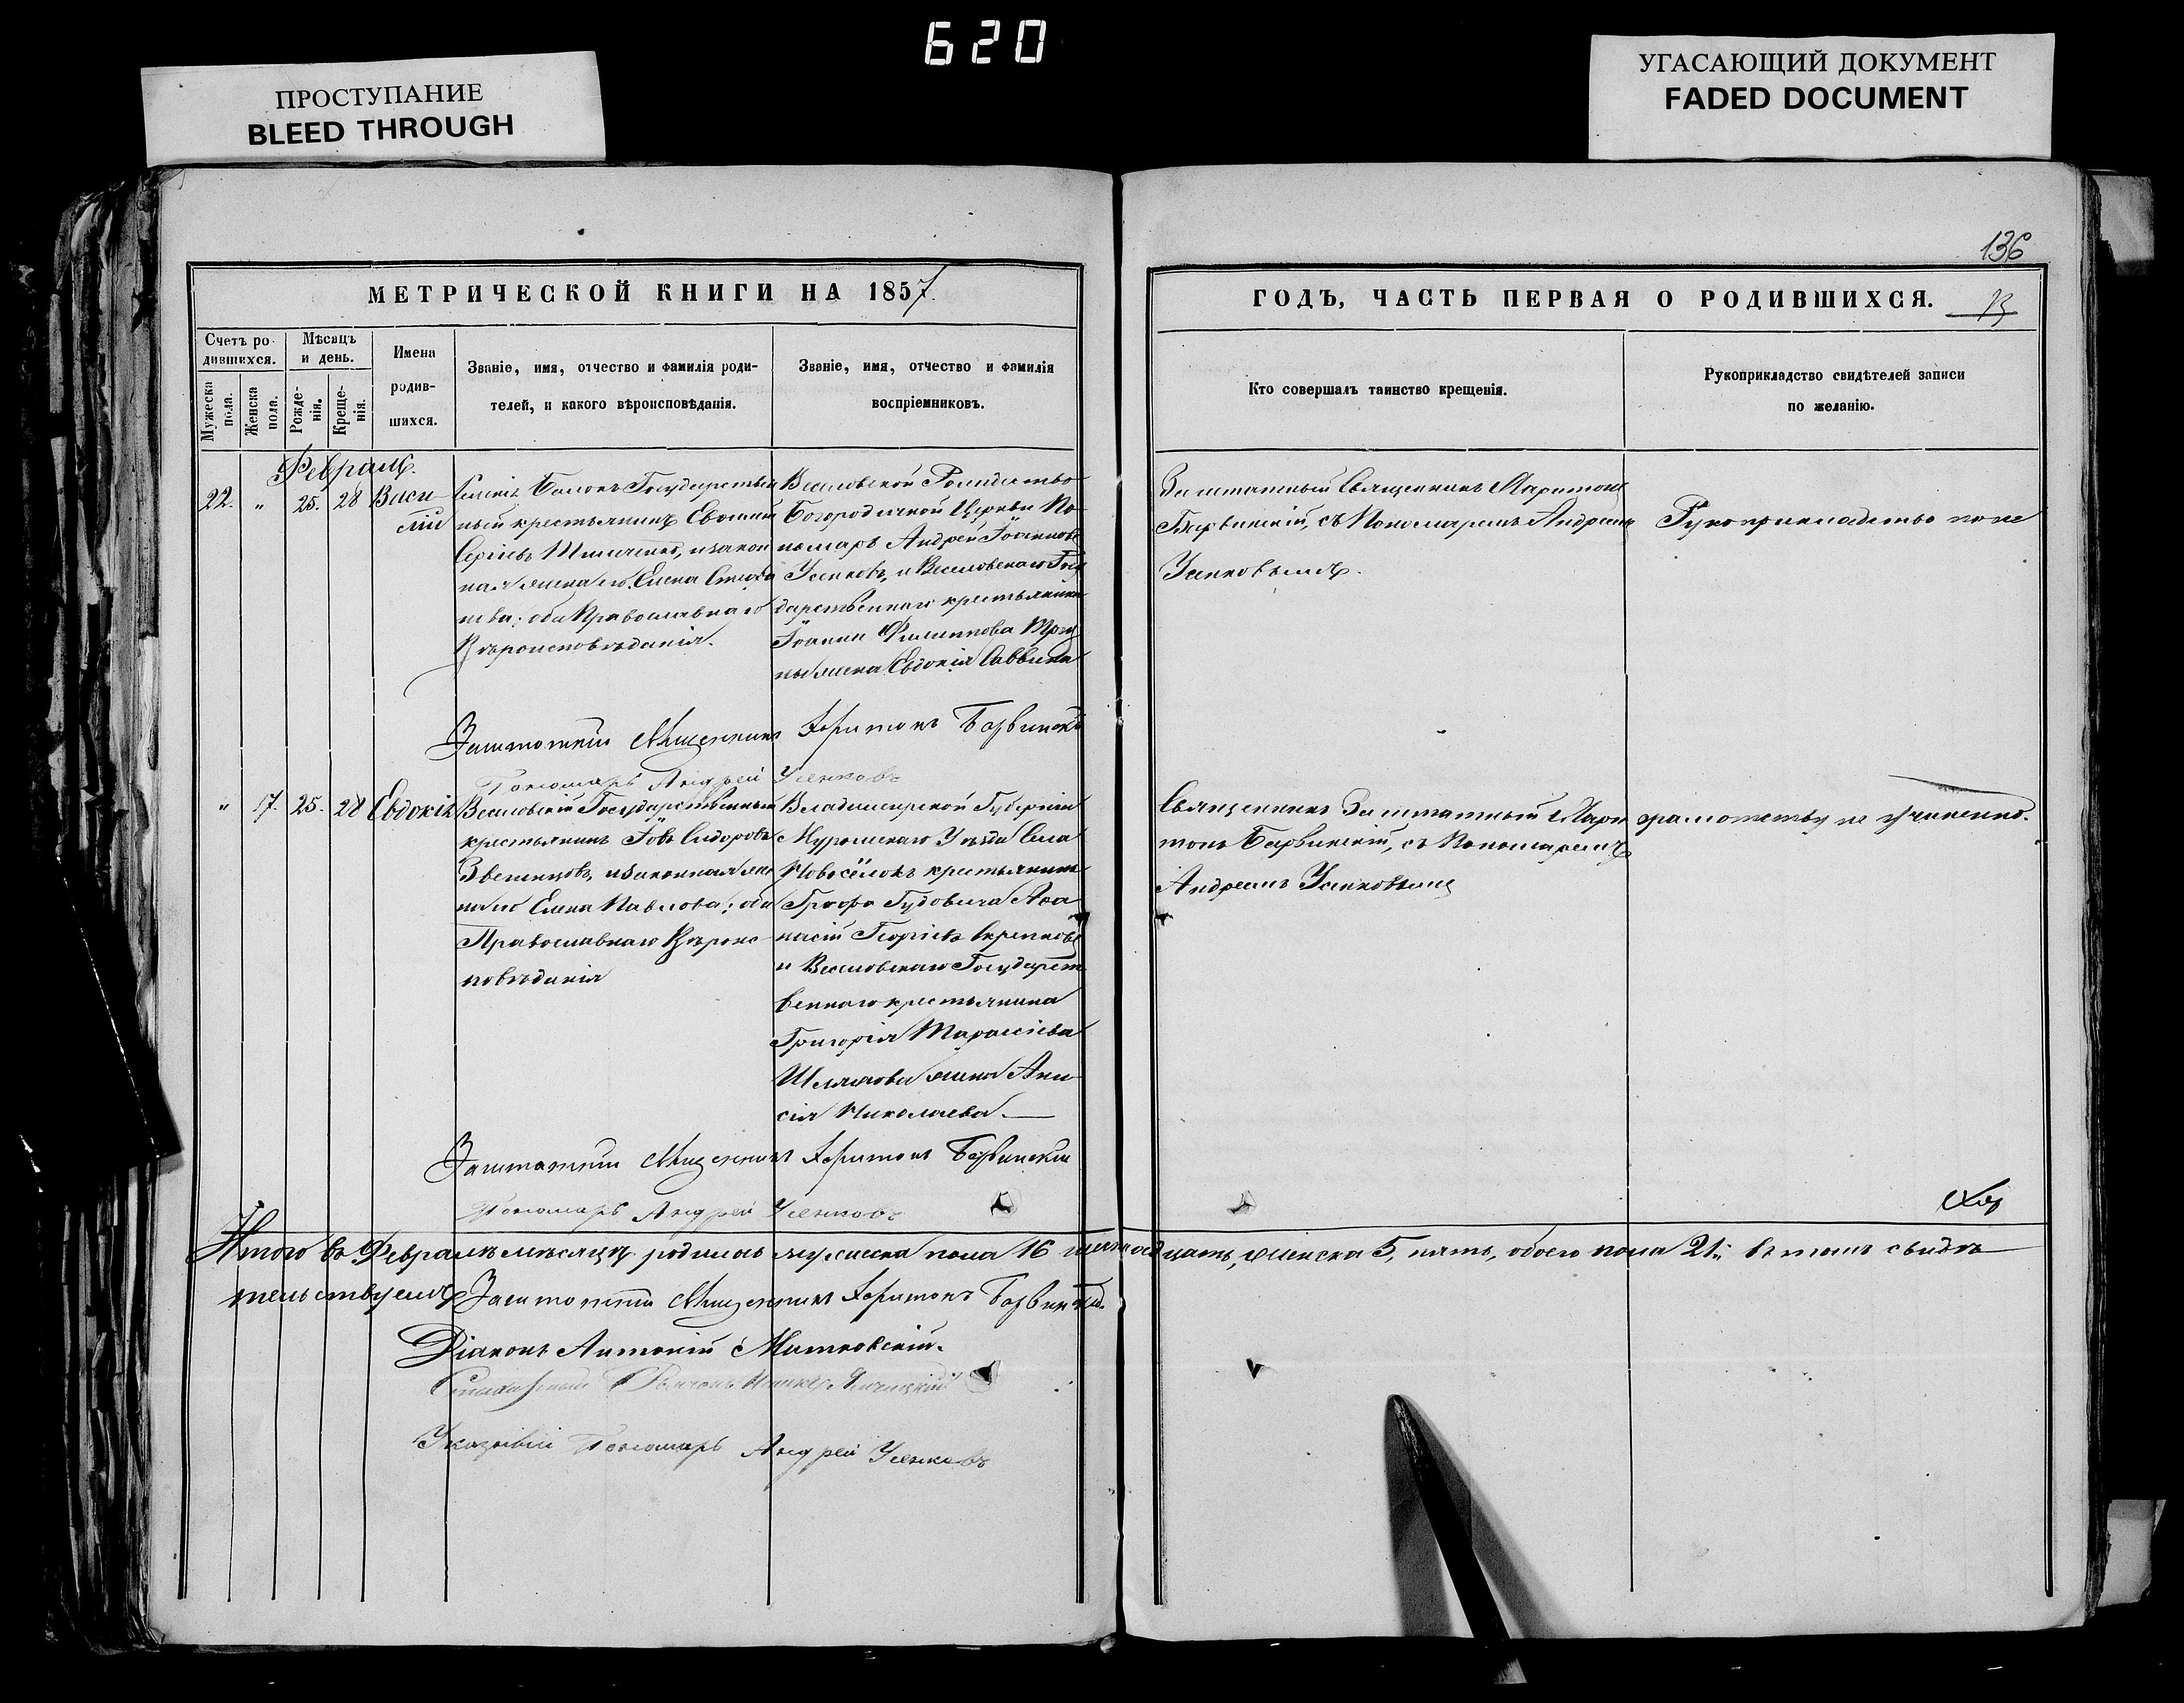 620
ПРОСТУПАНИЕ
BLEED THROUGH
УГАСАЮЩИЙ ДОКУМЕНТ
FADED DOCUMENT
136
МЕТРИЧЕСКОЙ КНИГИ НА 1857.
ГОДЪ, ЧАСТЬ ПЕРВАЯ О РОДИВШИХСЯ.
Счетъ ро-
дившихся.
Мужеска
пола.
Женска
пола.
Мѣсяцъ
и день.
Рожде-
нія.
Креще-
нія.
Имена
родив-
шихся.
Званіе, имя, отчество и фамилія роди-
телей, и какого вѣроисповѣданія.
Званіе, имя, отчество и фамилія
воспріемниковъ.
Кто совершалъ таинство крещенія.
Рукоприкладство свидѣтелей записи
по желанію.
Февраль.
22. " 25. 28 Васи-
лій
Государствен
ный крестьянинъ Евфимій
Сергіевъ, и закон
ная жена его Елена
оба Православнаго
Вѣроисповѣданія.
Веселовской Рождество
Богородичной Церкви По
номарь Андрей Іоанновъ
Усенковъ, и Веселовскаго Госу
дарственнаго крестьянина
Іоанна Филиппова
жена Евдокія Саввина
Заштатный Священникъ Харитонъ
Барвинскій, съ Пономаремъ Андреемъ
Усенковымъ.
Рукоприкладство по не
Заштатный Священникъ Харитонъ Барвинскій
Пономарь Андрей Усенковъ
" 17. 25. 28 Евдокія
Веселовскій Государственный
крестьянинъ Іовъ Сидоровъ
и законная же
на его Елена Павлова; оба
Православнаго Вѣроис-
повѣданія
Владимирской Губерніи
Муромскаго Уѣзда Села
Новосёлокъ крестьянинъ
Графа Гудовича Аѳа
насій Георгіевъ
и Веселовскаго Государст
веннаго крестьянина
Григорія Тарасіева
жена Ани
сія Николаева.
Священникъ Заштатный Хари
тонъ Барвинскій, съ Пономаремъ
Андреемъ Усенковымъ
грамотству не учинено.
Заштатный Священникъ Харитонъ Барвинскій
Пономарь Андрей Усенковъ
Итого въ Февралѣ мѣсяцѣ родилось мужеска пола 16 шестнадцать, женска 5, пять, обоего пола 21. въ томъ свидѣ
тельствуемъ Заштатный Священникъ Харитонъ Барвинскій.
Діаконъ Антоній Митковскій.
Указный Пономарь Андрей Усенковъ